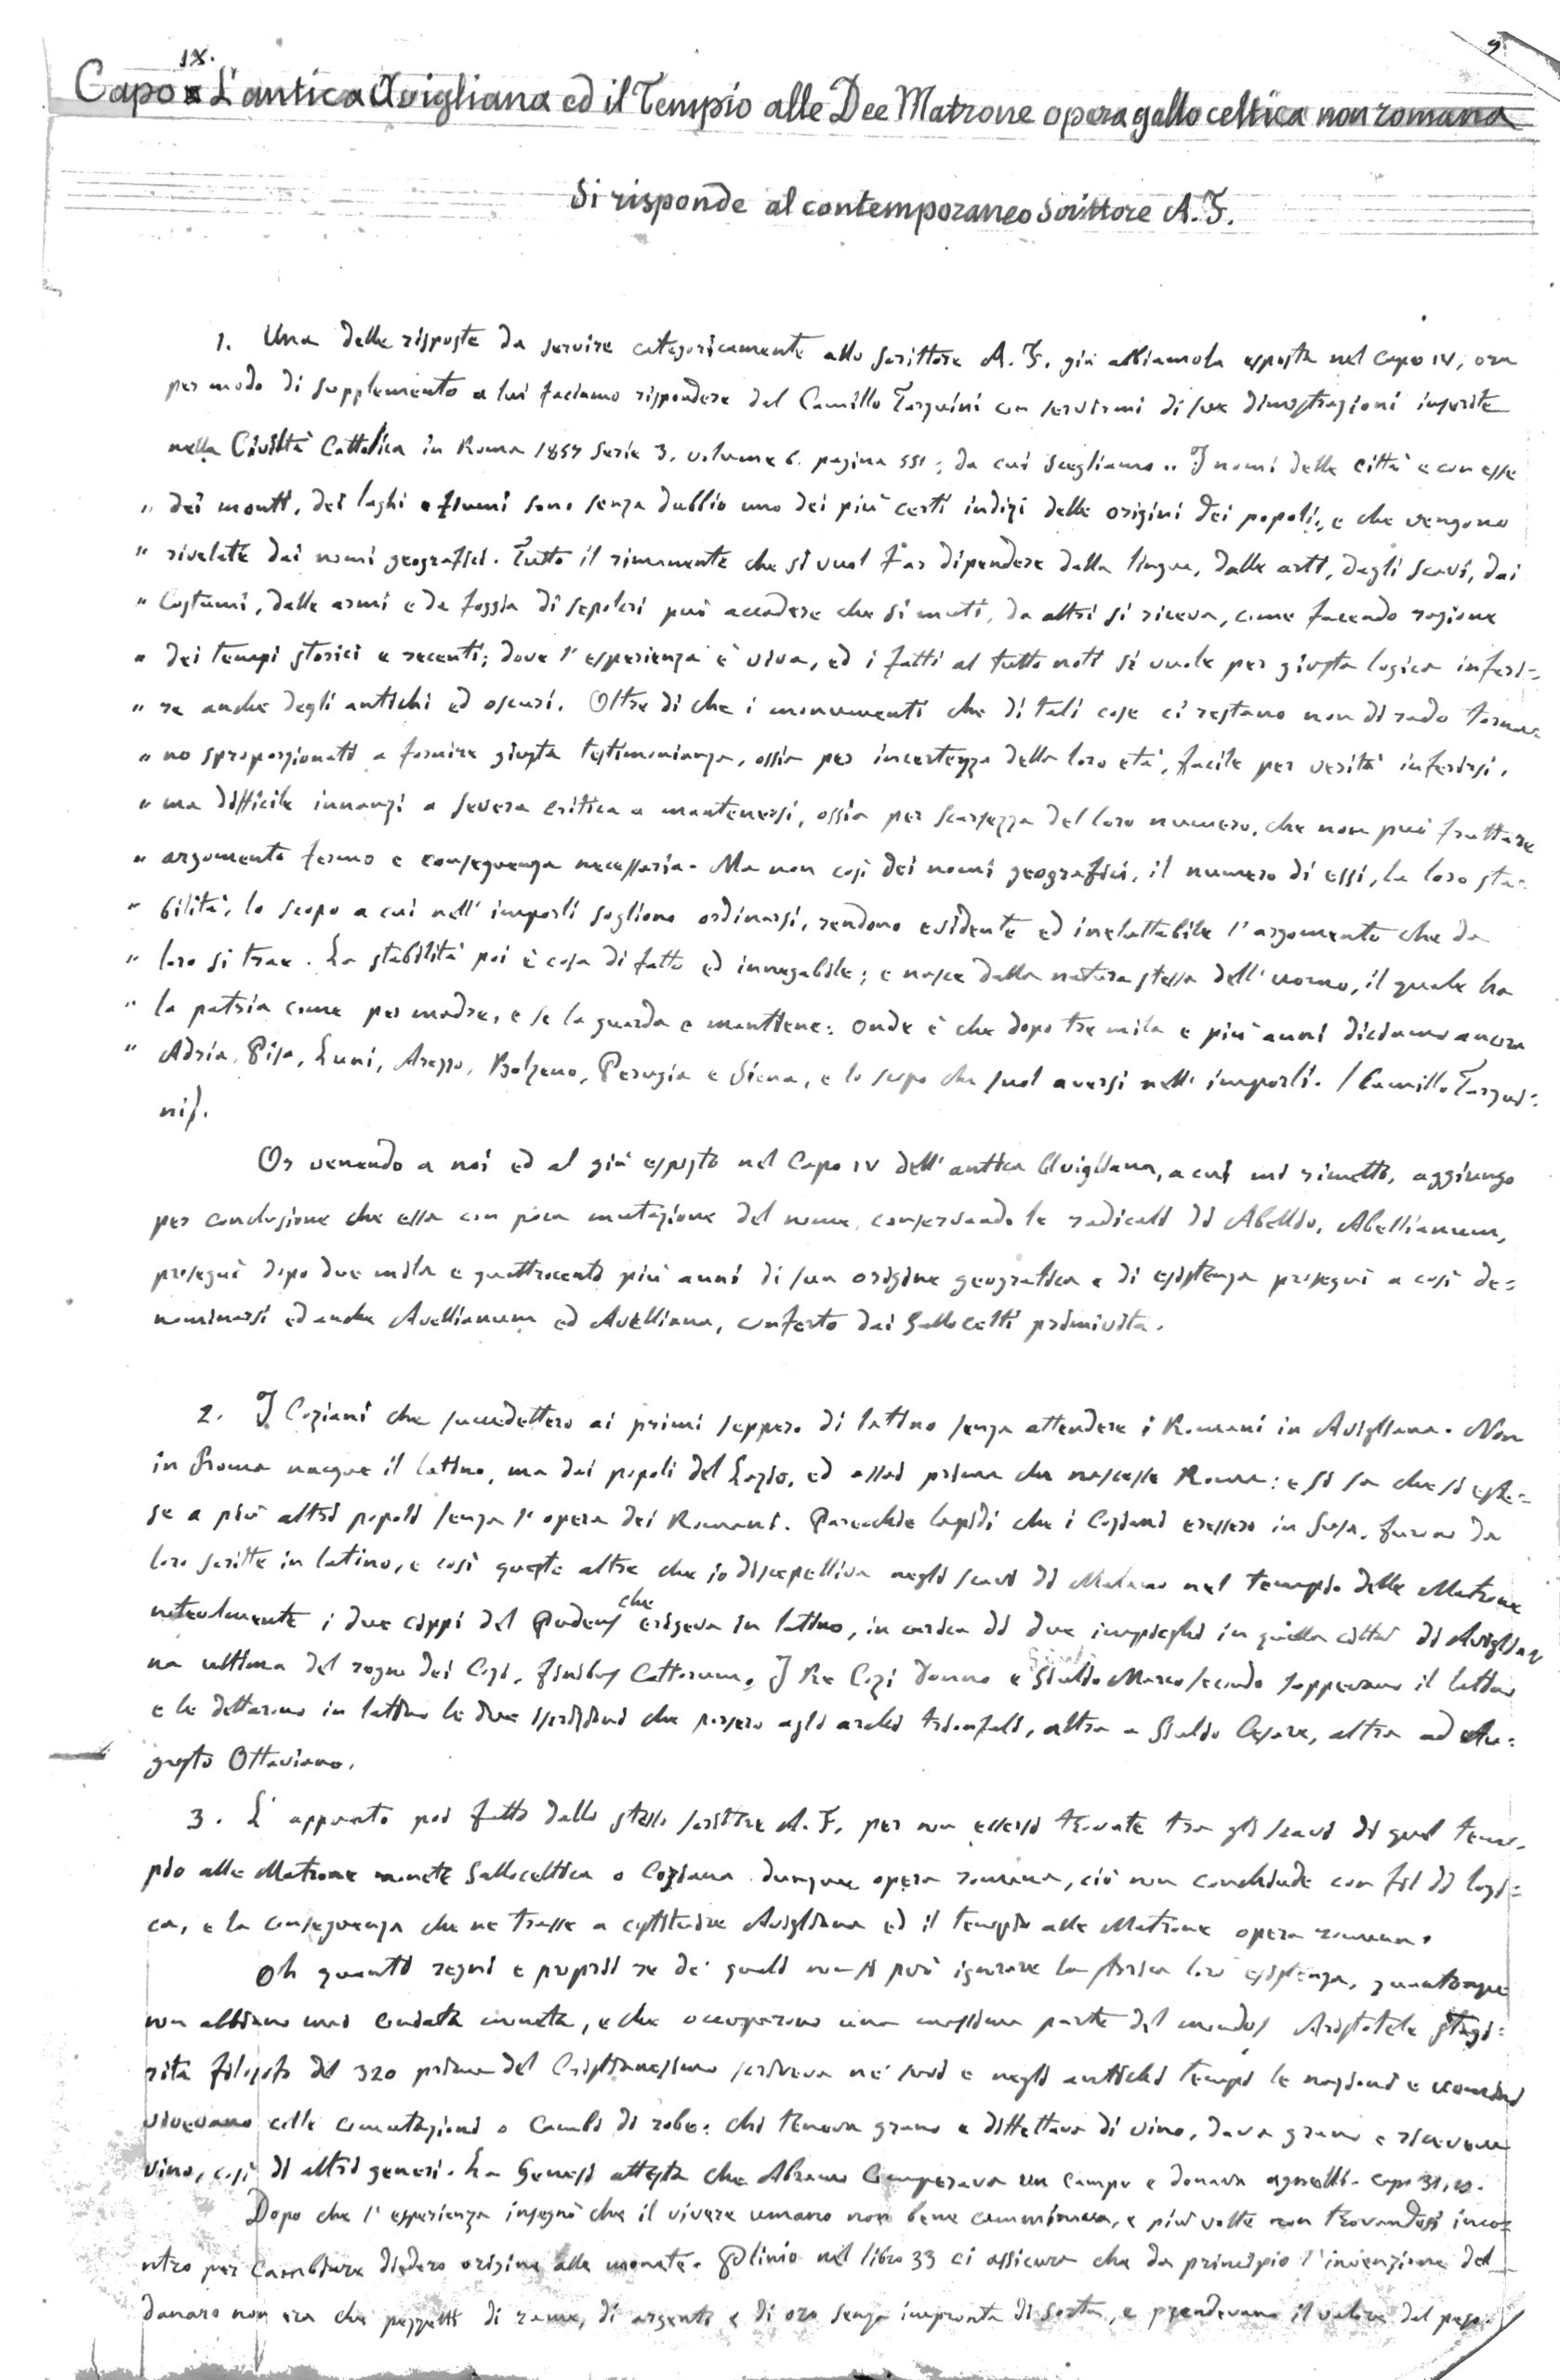 9
IX.
Capo L'antica Avigliana ed il Tempio alle Dee Matrone opera gallo celtica non romana
Si risponde al contemporaneo Scrittore A. F.
1. Una delle risposte da servire categoricamente allo Scrittore A. F. già abbiamola esposta nel Capo IV, ora
per modo di supplemento a lui faciamo rispondere dal Camillo Tarquini con servirmi di sue dimostrazioni inserite
nella Civiltà Cattolica in Roma 1857 Serie 3. volume 6. pagina 551; da cui scegliamo „ I nomi delle città e con esse
„ dei monti, dei laghi e fiumi sono senza dubbio uno dei più certi indizi delle origini dei popoli, e che vengono
„ rivelate dai nomi geografici. Tutto il rimanente che si vuol far dipendere dalla lingua, dalle arti, dagli scavi, dai
„ Costumi, dalle armi e da foggia di sepolcri può accadere che si muti, da altri si riceva, come facendo ragione
„ dei tempi storici e recenti; dove l'esperienza è viva, ed i fatti al tutto noti si vuole per giusta logica inferi=
„ re anche degli antichi ed oscuri. Oltre di che i monumenti che di tali cose ci restano non di rado torna=
„ no sproporzionati a fornire giusta testimonianza, ossia per incertezza della loro età, facile per verità inferirsi,
„ ma difficile innanzi a severa critica a mantenersi, ossia per scarsezza del loro numero, che non può fruttare
„ argomento fermo e conseguenza necessaria. Ma non così dei nomi geografici, il numero di essi, la loro sta=
„ bilità, lo scopo a cui nell'imporli sogliono ordinarsi, rendono evidente ed inelattabile l'argomento che da
„ loro si trae. La stabilità poi è cosa di fatto ed innegabile; e nasce dalla natura stessa dell'uomo, il quale ha
„ la patria come per madre, e se la guarda e mantiene: onde è che dopo tre mila e più anni diciamo ancora
„ Adria, Pisa, Luni, Arezzo, Bolzeno, Perugia e Siena, e lo scopo che suol aversi nell'imporli. / Camillo Tarqui=
ni).
Or venendo a noi ed al già esposto nel Capo IV dell'antica Avigliana, a cui mi rimetto, aggiungo
per conclusione che essa con poca mutazione del nome, conservando le radicali di Abellio, Abellianum,
proseguì dopo due mila e quattrocento più anni di sua origine geografica e di esistenza proseguì a così de=
nominarsi ed anche Avellianum ed Avelliana, conferto dai Gallocelti primivita.
2. I Coziani che succedettero ai primi seppero di latino senza attendere i Romani in Avigliana. Non
in Roma nacque il latino, ma dai popoli del Lazio, ed assai prima che nascesse Roma: e si sa che si este=
se a più altri popoli senza l'opera dei Romani. Parecchie lapidi che i Coziani eressero in Susa, furono da
loro scritte in latino, e così queste altre che io diseppelliva negli scavi di Malano nel tempio delle Matrone
notevolmente i due cippi del Pudens che erigeva in latino, in carica di due impieghi in quella città di Aviglia
na ultima del regno dei Cozi, finibus Cottorum. I Re Cozi Donno e Giulio Marco secondo sappevano il latino
e le dettarono in latino le due iscrizioni che posero agli archi trionfali, altra a Giulio Cesare, altra ad Au=
gusto Ottaviano.
3. L'appunto poi fatto dallo stesso scrittore A. F. per non essersi trovate tra gli scavi di quel tem=
pio alle Matrone monete Galloceltica o Coziana dunque opera romana, ciò non conchiude con fil di logi=
ca, e la conseguenza che ne trasse a costituire Avigliana ed il tempio alle Matrone opera romana.
Oh quanti regni e proprii re de' quali non si può ignorare la storica loro esistenza, quantunque
non abbiano mai coniata moneta, e che occuparono una massima parte del mondo! Aristotele Stagi=
rita filosofo del 320 prima del Cristianesimo scriveva ne' suoi e negli antichi tempi le nazioni e uomini
vivevano colle comutazioni o Cambi di robe: chi teneva grano e diffettava di vino, dava grano e riceveva
vino, così di altri generi. La Genesi attesta che Abramo Comperava un campo e donava agnelli. capo 31, 10.
Dopo che l'esperienza insegnò che il vivere umano non bene camminava, e più volte non trovandosi inco=
ntro per Cambiare diedero origine alle monete. Plinio nel libro 33 ci assicura che da principio l'invenzione del
danaro non era che pezzetti di rame, di argento e di oro senza impronta di sorta, e prendevano il valore dal peso.